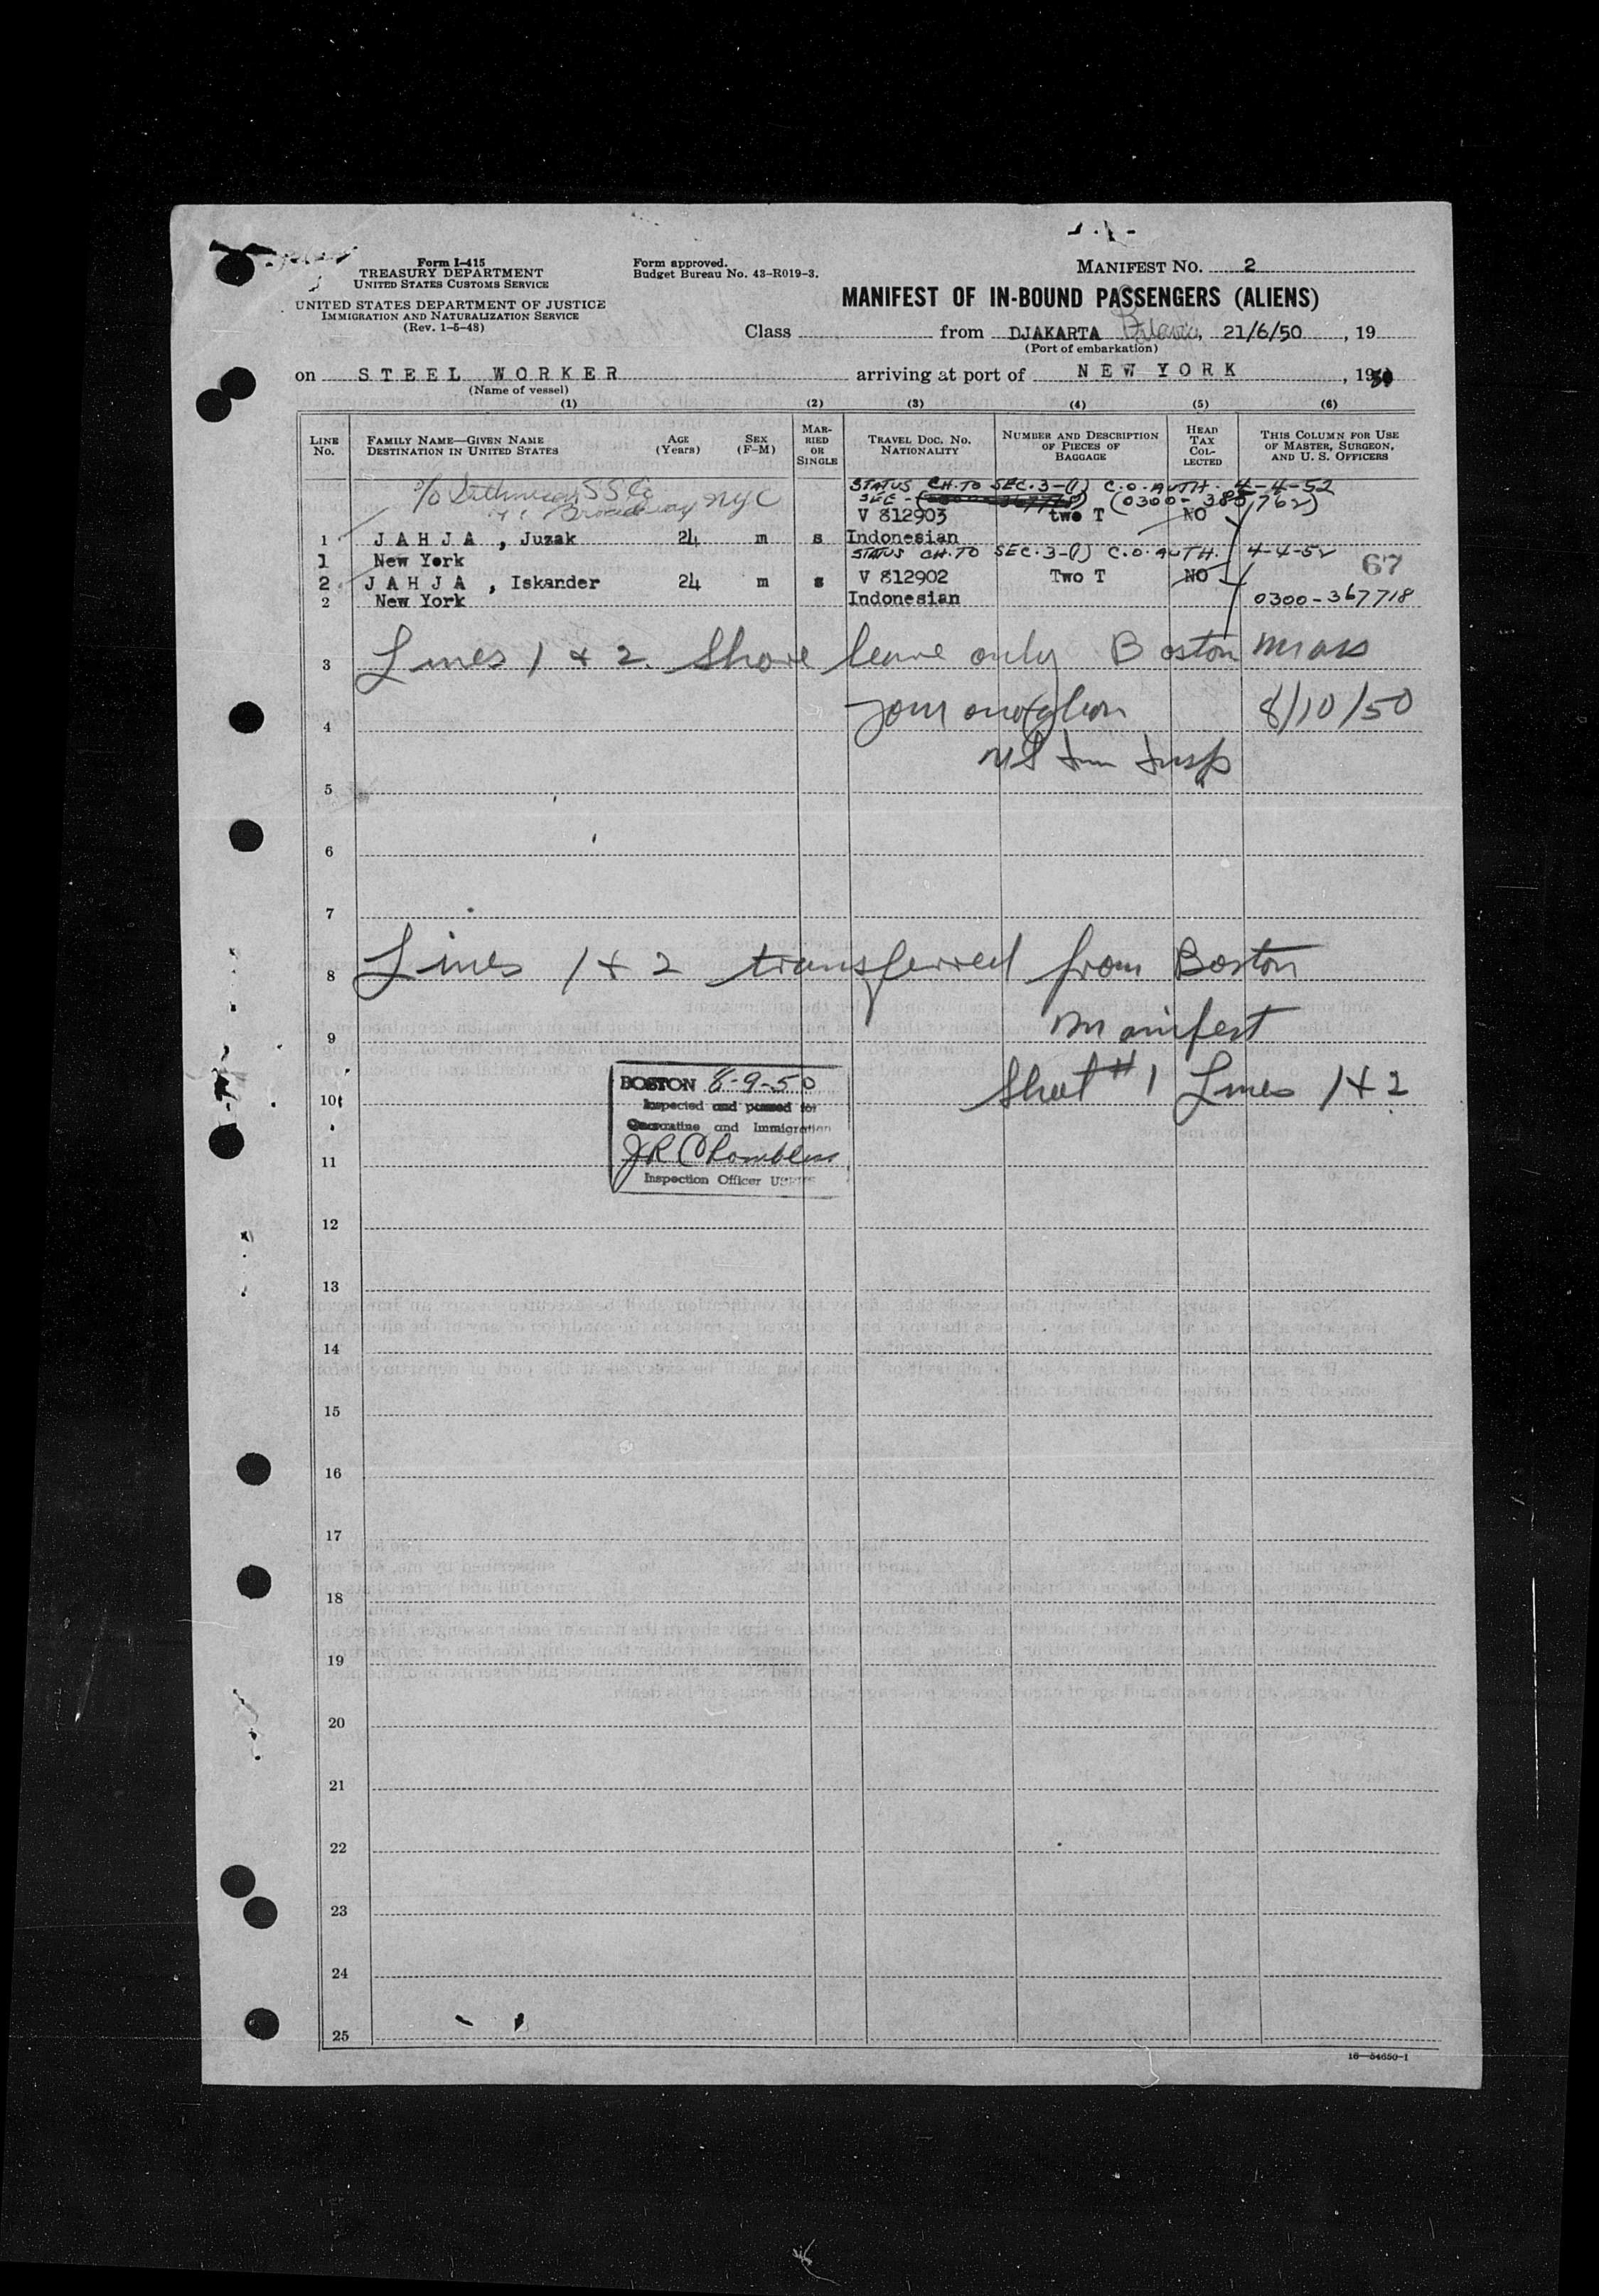 Form I-415
TREASURY DEPARTMENT
UNITED STATES CUSTOMS SERVICE
UNITED STATES DEPARTMENT OF JUSTICE
IMMIGRATION AND NATURALIZATION SERVICE
(Rev. 1-5-48)
Form approved.
Budget Bureau No. 43-R019-3.
MANIFEST No. 2
MANIFEST OF IN-BOUND PASSENGERS (ALIENS)
Class from DJAKARTA, 21/6/50, 19
(Port of embarkation)
on STEEL WORKER arriving at port of NEW YORK, 1950
(Name of vessel)
(1) (2) (3) (4) (5) (6)
LINE No. FAMILY NAME—GIVEN NAME DESTINATION IN UNITED STATES AGE (Years) SEX (F-M) MARRIED OR SINGLE TRAVEL DOC. NO. NATIONALITY NUMBER AND DESCRIPTION OF PIECES OF BAGGAGE HEAD TAX COLLECTED THIS COLUMN FOR USE OF MASTER, SURGEON, AND U. S. OFFICERS
c/o S S Co
Broadway NYC
STATUS CH. TO SEC. 3-(1) C.O. AUTH. 4-4-52
SEE - (0300-385762)
V 812903 two T NO
1 JAHJA, Juzak 24 m s Indonesian
STATUS CH. TO SEC. 3-(1) C.O. AUTH. 4-4-52
1 New York
67
2 JAHJA, Iskander 24 m s V 812902 Two T NO
2 New York Indonesian 0300-367718
3 Lines 1 & 2. Shore leave only Boston Mass
4 8/10/50
US Im Insp
5
6
7
8 Lines 1 & 2 transferred from Boston
9 Manifest
10 Sheet #1 Lines 1 & 2
BOSTON 8-9-50
Inspected and passed for
Quarantine and Immigration
J R Chambless
Inspection Officer USPHS
11
12
13
14
15
16
17
18
19
20
21
22
23
24
25
16—54650-1